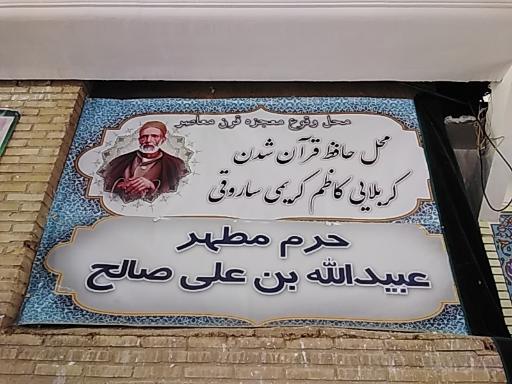 محل وقوع معجزه قرن معاصر
محل حافظ قرآن شدن
کربلایی کاظم کریمی ساروقی
حرم مطهر
عبیدالله بن علی صالح